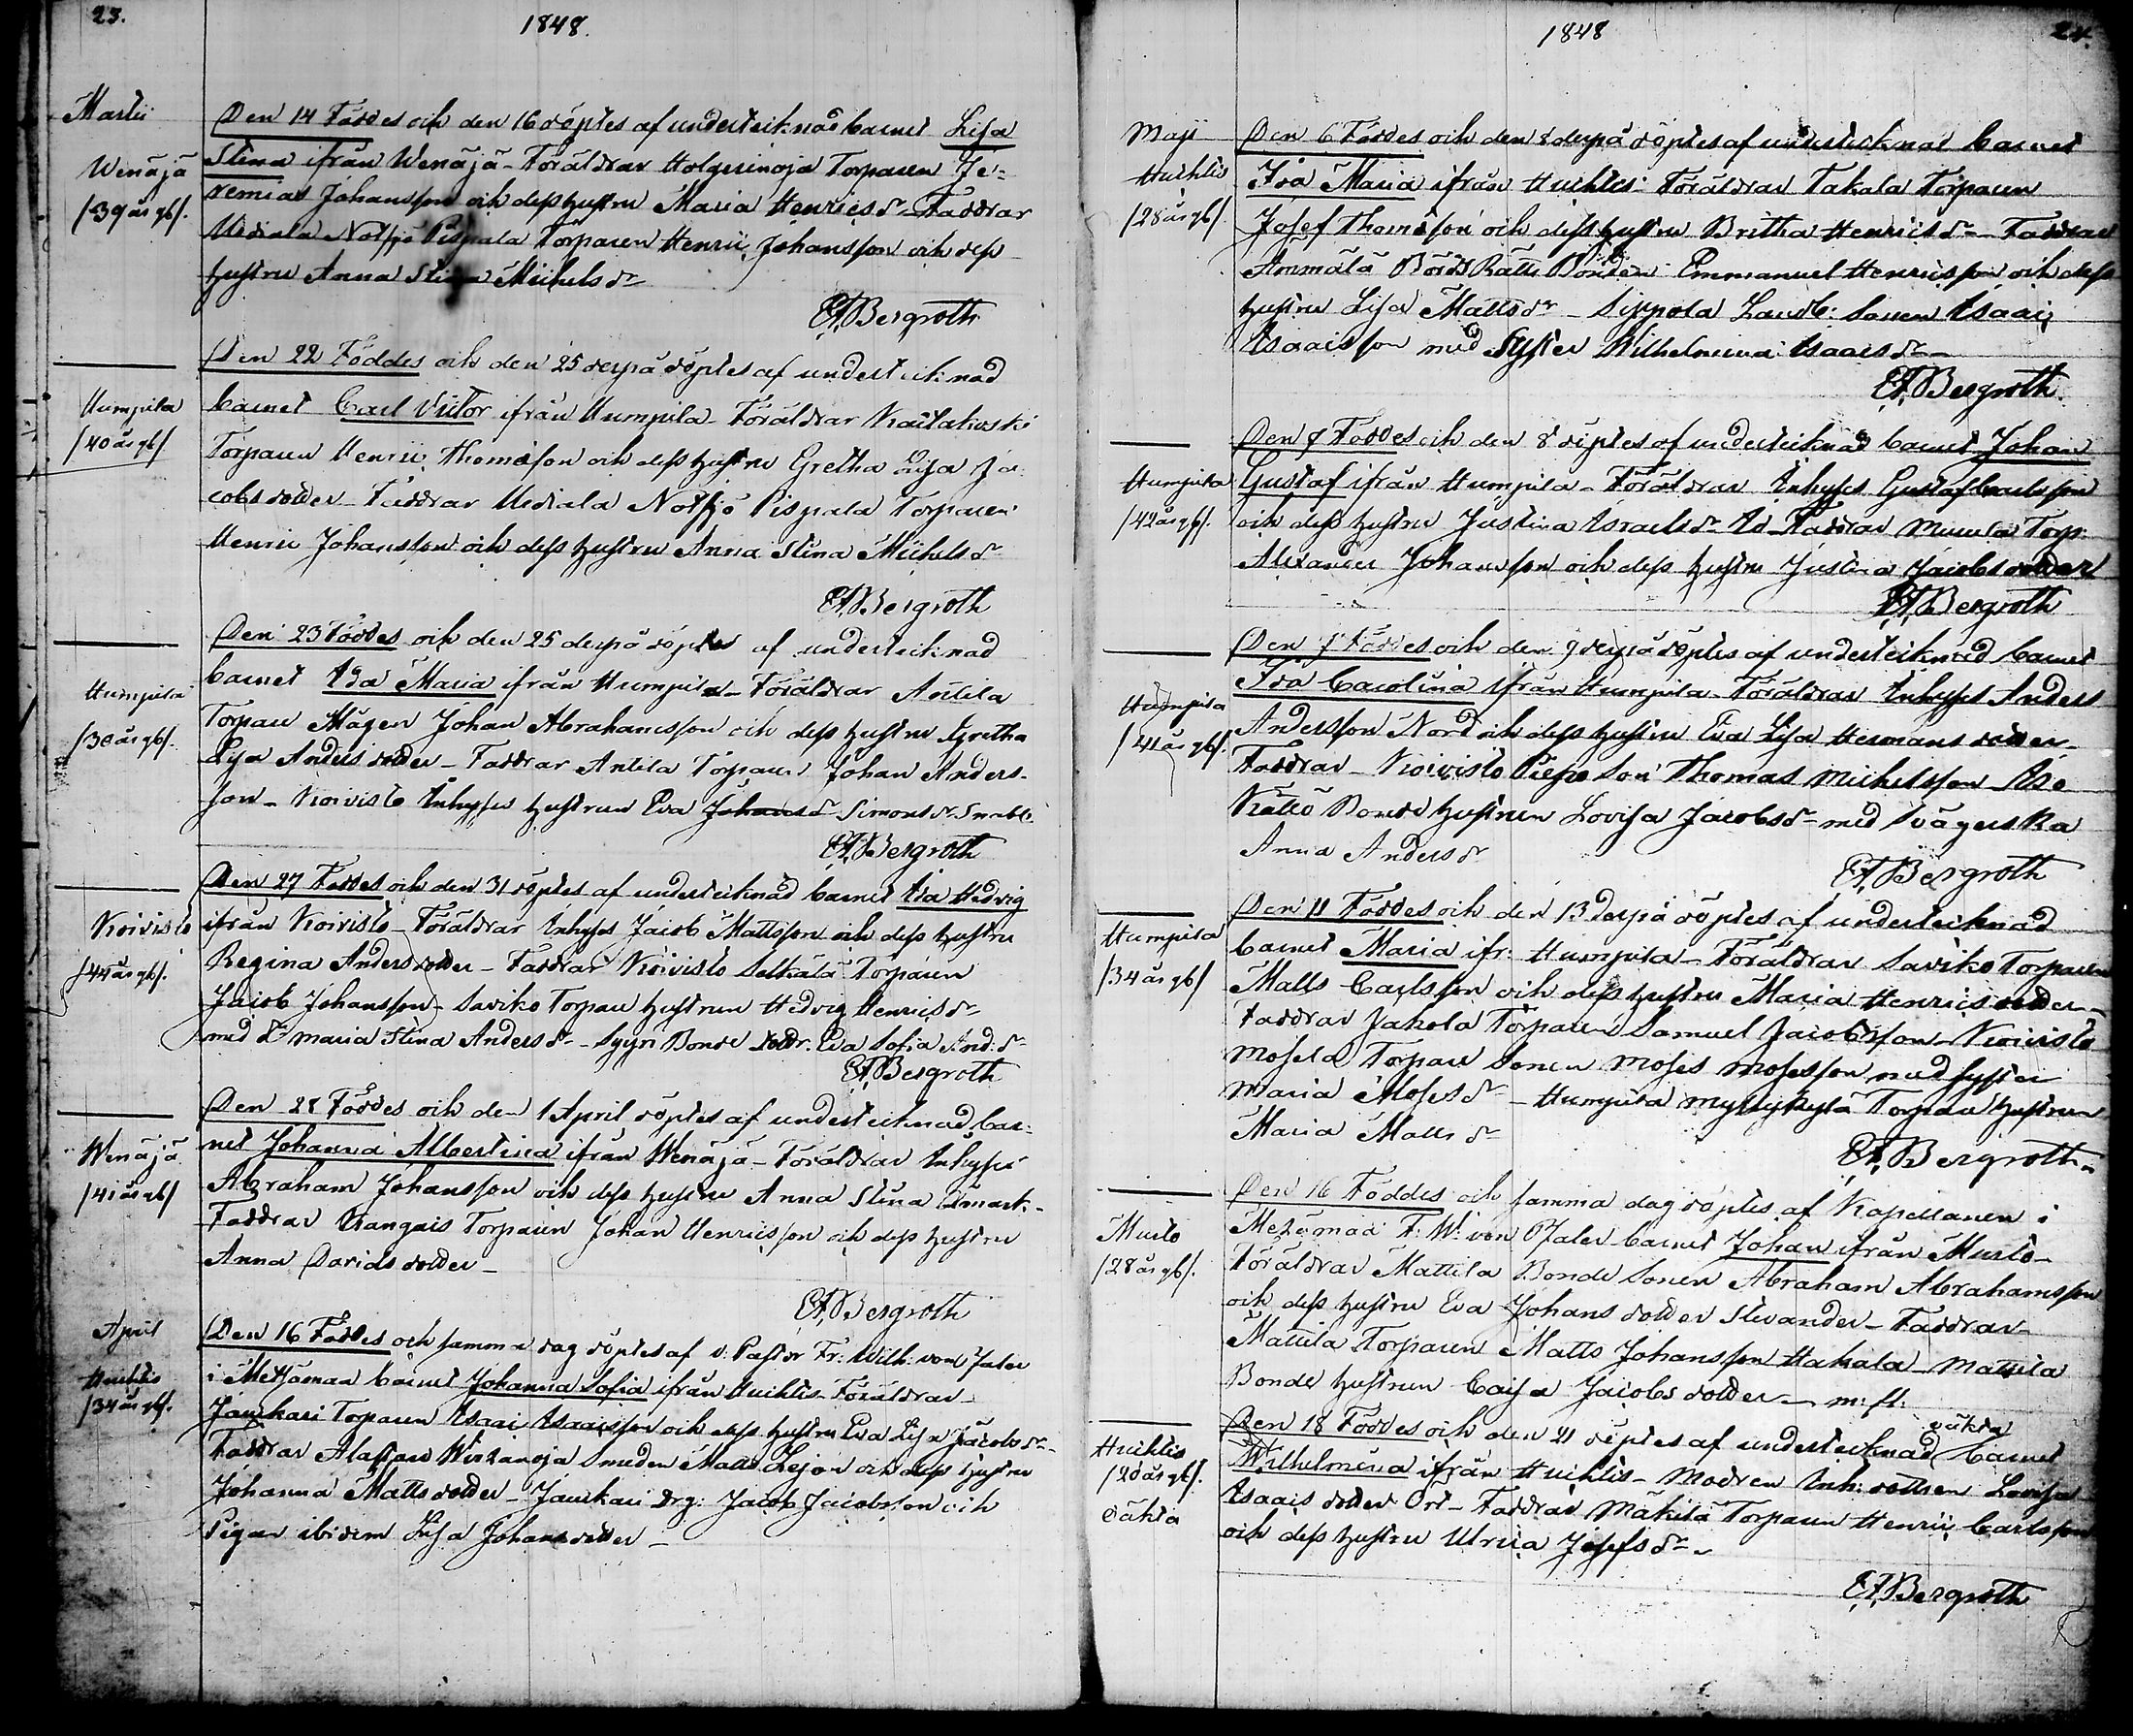 23.
1848.
Martii
Wenäjä
/39 år gl/.
Den 14 Föddes och den 16 döptes af undertecknad barnet Lisa
Stina ifrån Wenäjä - Föräldrar Holgerinoja Torparen Je-
remias Johansson och dess hustru Maria Henricsdr - Faddrar
Urdiala Notsjö Pispala Torparen Henric Johansson och dess
hustru Anna Stina Michelsdr
EABergroth
Humpila
/40 år gl/
Den 22 Föddes och den 25 derpå döptes af undertecknad
barnet Carl Victor ifrån Humpila - Föräldrar
Torparen Henric Thomasson och dess hustru Gretha Lisa Ja-
cobs dotter - Faddrar Urdiala Notsjö Pispala Torparen
Henric Johansson och dess hustru Anna Stina Michelsdr
EABergroth
Humpila
/30 år gl/.
Den 23 Föddes och den 25 derpå döptes af undertecknad
barnet Ida Maria ifrån Humpila - Föräldrar Anttila
Torpare Mågen Johan Abrahamsson och dess hustru Gretha
Lisa Anders dotter - Faddrar Antila Torparen Johan Anders-
son - Koivisto Inhyses hustrun Eva Johansd Simonsdr
EABergroth
Koivisto
/44 år gl/.
Den 27 Föddes och den 31 döptes af undertecknad barnet Ida Hedvig
ifrån Koivisto - Föräldrar Inhyses Jacob Mattsson och dess hustru
Regina Anders dotter - Faddrar Koivisto Torparen
Jacob Johansson - Saviko Torpare hustrun Hedvig Henricsdr
med Dr Maria Stina Andersdr - Syyri Bonde dottr. Eva Sofia And:dr
EABergroth
Wenäjä
/41 år gl/
Den 28 Föddes och den 1 April döptes af undertecknad bar-
net Johanna Albertina ifrån Wenäjä - Föräldrar Inhyses
Abraham Johansson och dess hustru Anna Stina
Faddrar Torparen Johan Henricsson och dess hustru
Anna Davids dotter -
EABergroth
April
Huchtis
/34 år gl/.
Den 16 Föddes och samma dag döptes af v: Pastor Fr: Wilh: von Jaler
i Metzämaa barnet Johanna Sofia ifrån Huchtis Föräldrar -
Jaurkari Torparen Isaac Isaacsson och dess hustru Eva Lisa Jacobsdr -
Faddrar Alastaro Wirzanoja Smeden Matts Lejon och dess hustru
Johanna Matts dotter - Jaurkari Drg: Jacob Jacobsson och
Pigan ibidem Lisa Johans dotter -
1848
24.
Maji
Huchtis
/28 år gl/.
Den 6 Föddes och den 8 derpå döptes af undertecknad barnet
Ida Maria ifrån Huchtis Föräldrar Takala Torparen
Josef Thomasson och dess hustru Britha Henricsdr - Faddrar
Ammälä Bönden Emmanuel Henricsson och dess
hustru Lisa Mattsdr - Seppola Landb: Sonen Isaac
Isaacsson med Syster Wilhelmina Isaacsdr -
EABergroth.
Humpila
/42 år gl/.
Den 7 Föddes och den 8 döptes af undertecknad barnet Johan
Gustaf ifrån Humpila - Föräldrar Inhyses Gustaf Carlsson
och dess hustru Justina Israelsdr - Faddrar Torp:
Alexander Johansson och dess hustru Justina Jacobs dotter
EABergroth
Humpila
/41 år gl/.
Den 7 Föddes och den 9 derpå döptes af undertecknad barnet
Ida Carolina ifrån Humpila - Föräldrar Inhyses Anders
Andersson Nord och dess hustru Eva Lisa Hermans dotter -
Faddrar - Koivisto Son Thomas Michelsson - Iso
Bonde hustrun Lovisa Jacobsdr - med Svägerska
Anna Andersdr
EABergroth
Humpila
/34 år gl/
Den 11 Föddes och den 13 derpå döptes af undertecknad
barnet Maria ifr: Humpila - Föräldrar Saviko Torparen
Matts Carlsson och dess hustru Maria Henrics dotter -
Faddrar Jakola Torparen Samuel Jacobsson - Koivisto
Mosela Torpare Sonen Moses Mosesson med syster
Maria Mosesdr - Humpila Myllykylä Torpare hustrun
Maria Mattsdr
EABergroth
Murto
/28 år gl/.
Den 16 Föddes och samma dag döptes af Kapellanen i
Mezämaa F: W: von Jaler barnet Johan ifrån Murto -
Föräldrar Mattila Bonde Sonen Abraham Abrahamsson
och dess hustru Eva Johans dotter Stevander - Faddrar
Mattila Torparen Matts Johansson Hakala - Mattila
Bonde hustrun Caisa Jacobs dotter - m: fl:
Huchtis
/20 år gl/.
oäkta
Den 18 Föddes och den 21 döptes af undertecknad oäkta barnet
Wilhelmina ifrån Huchtis - Modren Inh: dottren Lovisa
Isaacs dotter Ort - Faddrar Mäkilä Torparen Henric Carlsson
och dess hustru Ulrica Josefsdr -
EABergroth